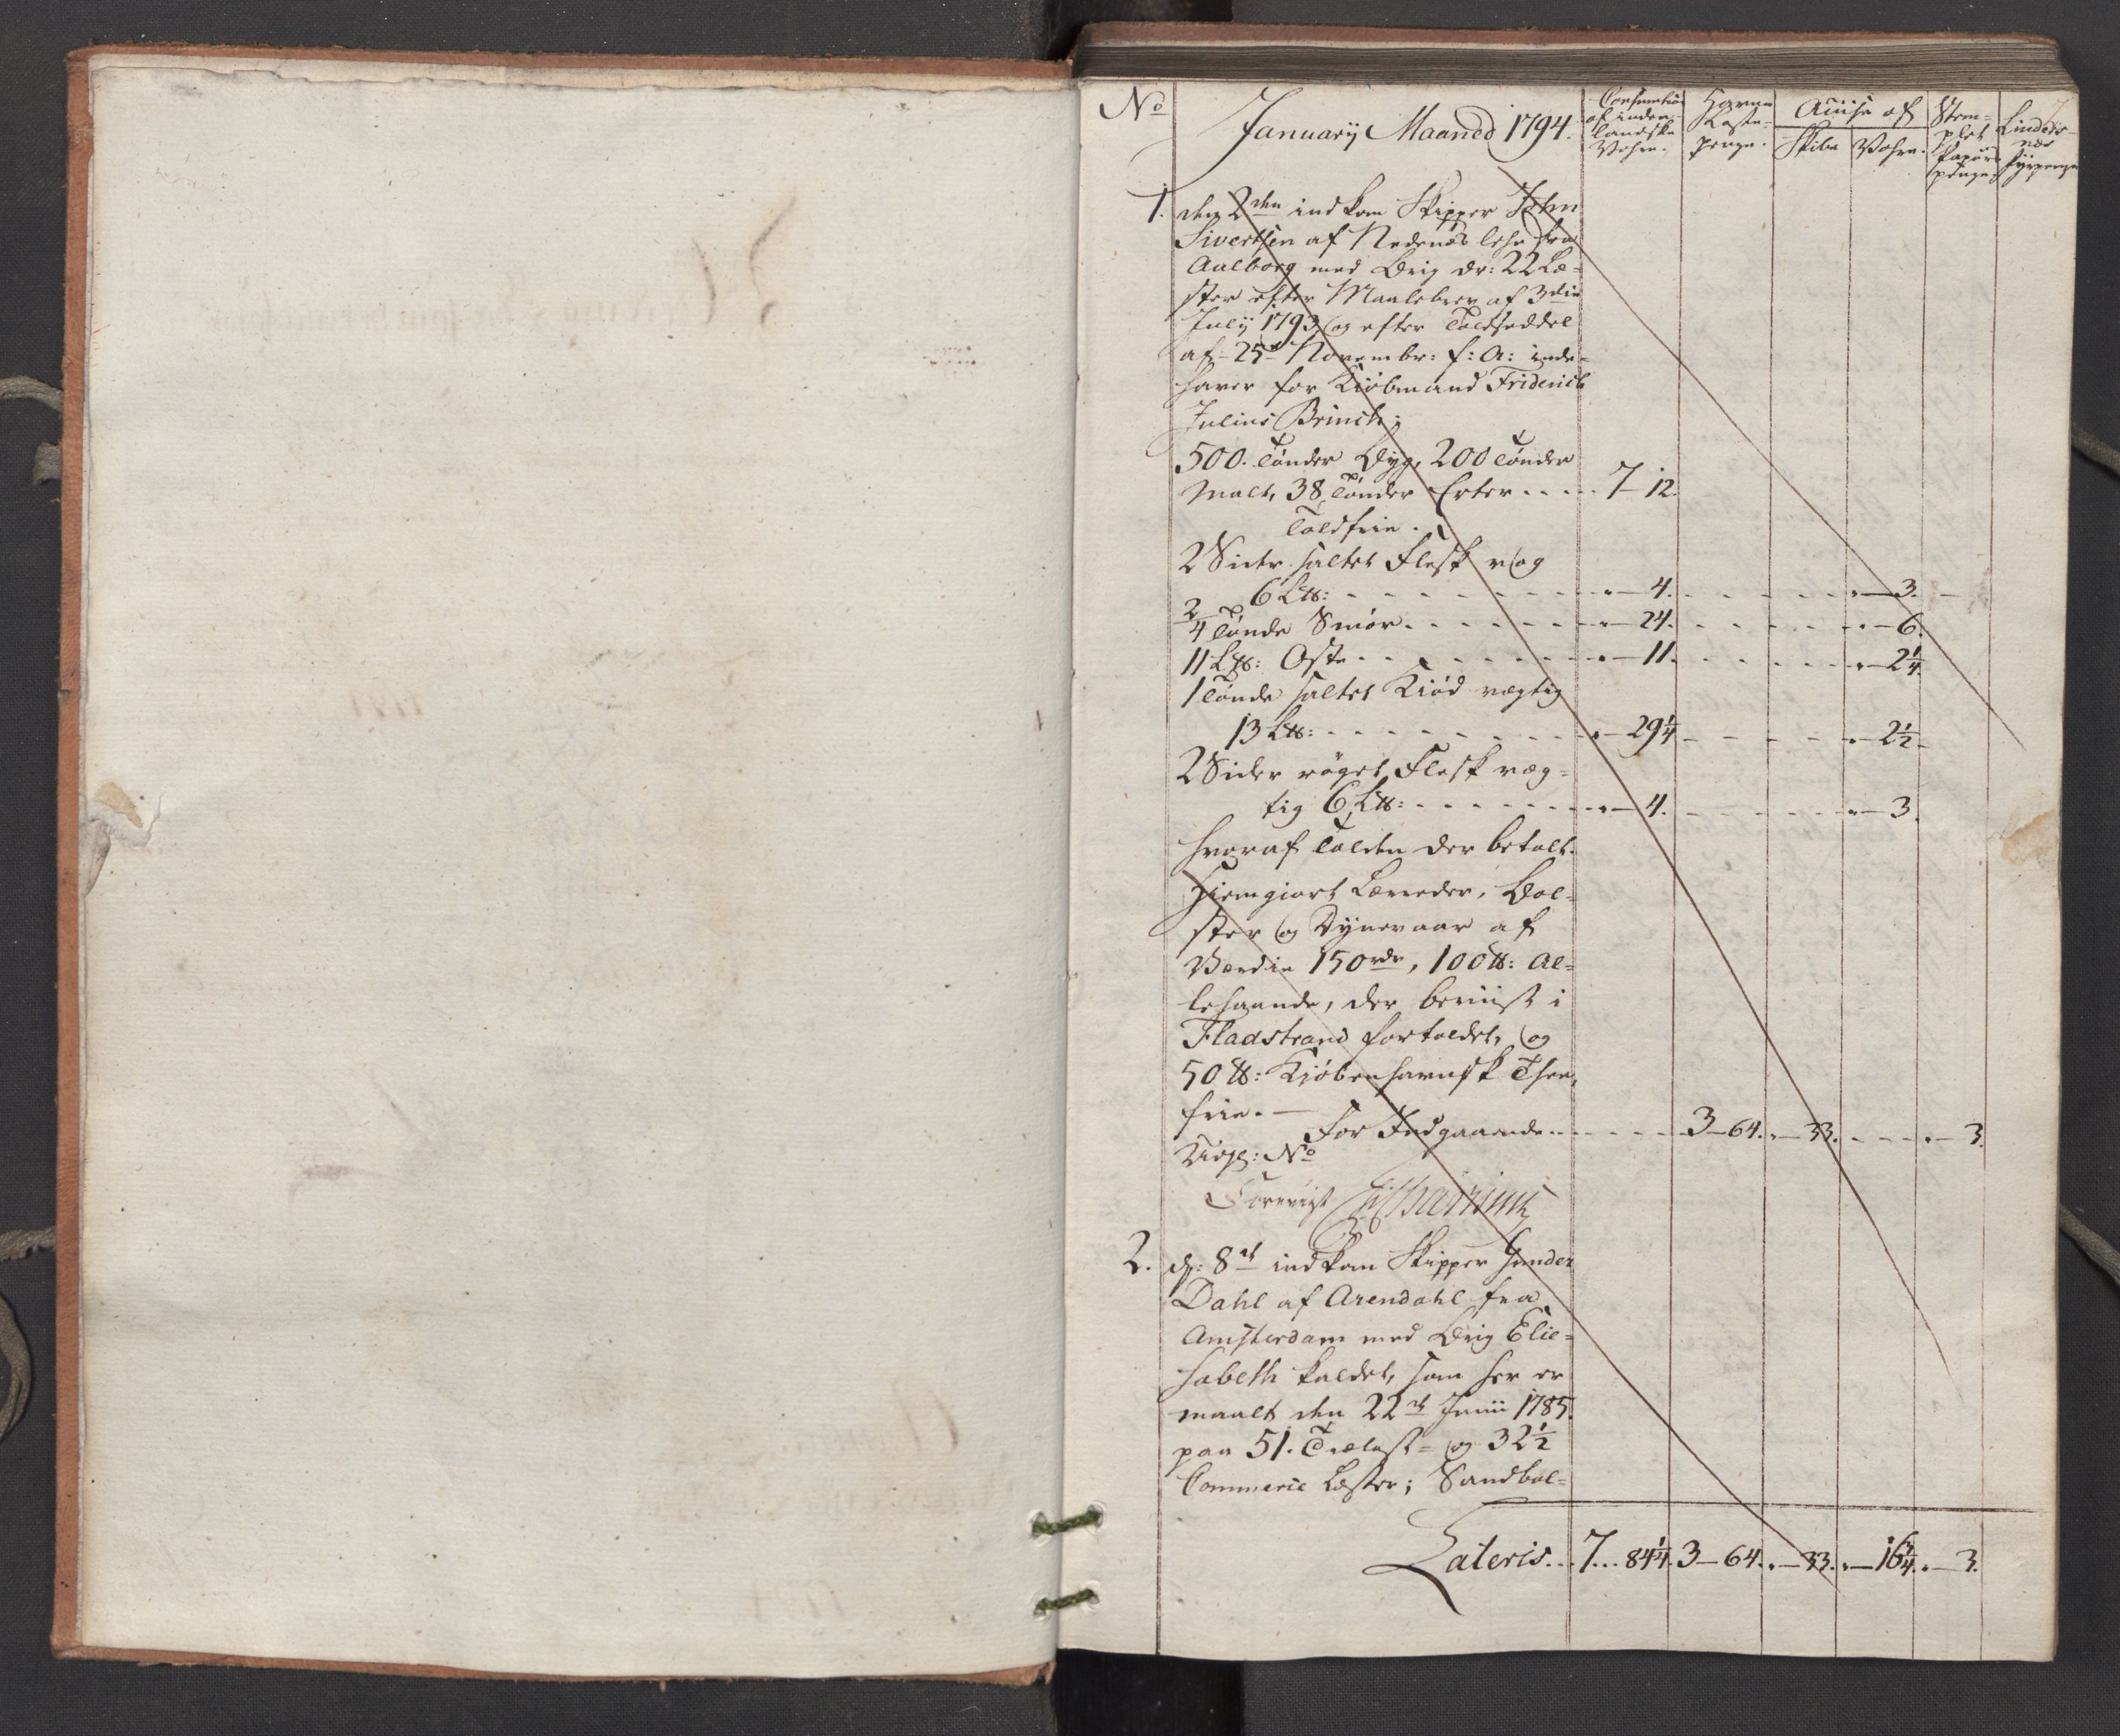 No
January Maaned 1794.
Consumtion af inden-landske Vahre.
Havne Kaste-penge.
Accise af
Skibe
Vahre.
Stem-plet Papirs penge
Lindes-næs Fyrpenge
1. den 2den indkom Skipper John
Sivertsen af Nedenæs Lehn fra
Aalborg med Brig dr: 22 Læ-
ster efter Maalebrev af 3die
July 1793, og efter Toldseddel
af 25de Novembr: f: A: inde-
haver for Kiøbmand Friderich
Julius Brinch;
500. Tønder Byg, 200 Tønder
Malt, 38 Tønder Erter . . . . 7 - 12.
Toldfrie.
2 Sider saltet Flesk og
6 L℔: - - - „ - 4. - - - „ - 3.
2/4 Tønde Smør. - - - „ - 24. - - - „ - 6.
11 L℔: Oste - - - „ - 11. - - - „ - 2 1/4.
1 Tønde saltet Kiød vægtig
13 L℔: - - - „ - 29 1/4 - - - „ - 2 1/2.
2 Sider røget Flesk væg-
tig 6 L℔: - - - „ - 4. - - - „ - 3.
hvoraf Tolden der betalt.
Hiemgiort Lærreder, Bol-
ster og Dynevaar af
Værdie 150 rdr, 100 ℔: Al-
lehaande, der beviist i
Fladstrand fortoldet, og
50 ℔: Kiøbenhavnsk Thee,
frie. —
For Indgaaende - - - 3 - 64. „ - 33. - - - „ - 3.
No
Forevist
2. d: 8de indkom Skipper Gunder
Dahl af Arendahl fra
Amsterdam med Brig Elie-
sabeth kaldet, som her er
maalt den 22de Junii 1785.
paa 51. Trælast- og 32 1/2
Commerce Læster; Sandbal-
Lateris. . . 7 . . . 84 1/4. 3 - 64. „ - 33. „ - 16 3/4. „ - 3.